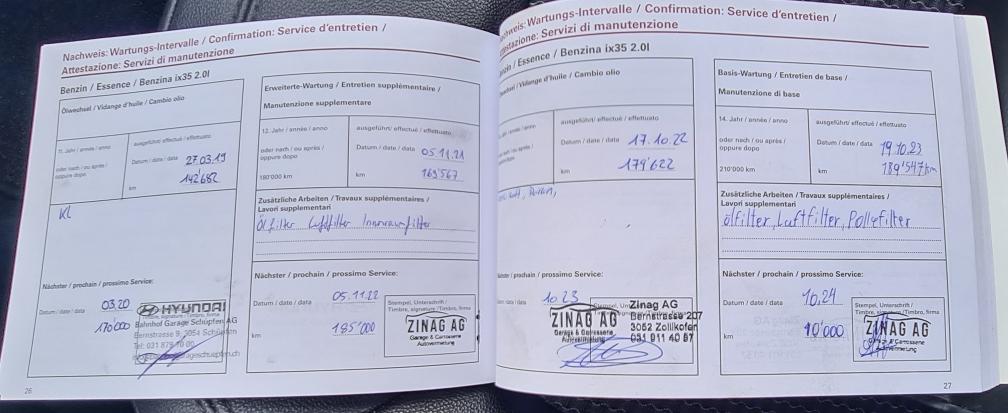 Nachweis: Wartungs-Intervalle / Confirmation: Service d'entretien /
Attestazione: Servizi di manutenzione
Benzin / Essence / Benzina ix35 2.0l
Ölwechsel / Vidange d'huile / Cambio olio
11. Jahr / année / anno
ausgeführt / effectué / effettuato
oder nach / ou après /
oppure dopo
Datum / date / data 27.03.19
km 142'682
KL
Nächster / prochain / prossimo Service:
Datum / date / data 03.20
170'000
HYUNDAI
Bahnhof Garage Schüpfen AG
Bernstrasse 9, 3054 Schüpfen
26
Erweiterte-Wartung / Entretien supplémentaire /
Manutenzione supplementare
12. Jahr / année / anno
ausgeführt / effectué / effettuato
oder nach / ou après /
oppure dopo
Datum / date / data 05.11.21
180'000 km
km 163'567
Zusätzliche Arbeiten / Travaux supplémentaires /
Lavori supplementari
Ölfilter Luftfilter Innenraumfilter
Nächster / prochain / prossimo Service:
Datum / date / data 05.11.22
km 185'000
Stempel, Unterschrift /
Timbre, signature / Timbro, firma
ZINAG AG
Garage & Carrosserie
Autovermietung
Nachweis: Wartungs-Intervalle / Confirmation: Service d'entretien /
Attestazione: Servizi di manutenzione
Benzin / Essence / Benzina ix35 2.0l
Ölwechsel / Vidange d'huile / Cambio olio
ausgeführt / effectué / effettuato
Datum / date / data 17.10.22
km 174'622
prochain / prossimo Service:
date / data 10.23
ZINAG AG
Garage & Carrosserie
Autovermietung
Zinag AG
Bernstrasse 207
3052 Zollikofen
031 911 40 87
Basis-Wartung / Entretien de base /
Manutenzione di base
14. Jahr / année / anno
ausgeführt / effectué / effettuato
oder nach / ou après /
oppure dopo
Datum / date / data 19.10.23
210'000 km
km 189'547 km
Zusätzliche Arbeiten / Travaux supplémentaires /
Lavori supplementari
Ölfilter, Luftfilter, Pollefilter
Nächster / prochain / prossimo Service:
Datum / date / data 10.24
km 10'000
Stempel, Unterschrift /
Timbre, signature / Timbro, firma
ZINAG AG
Garage & Carrosserie
Autovermietung
27